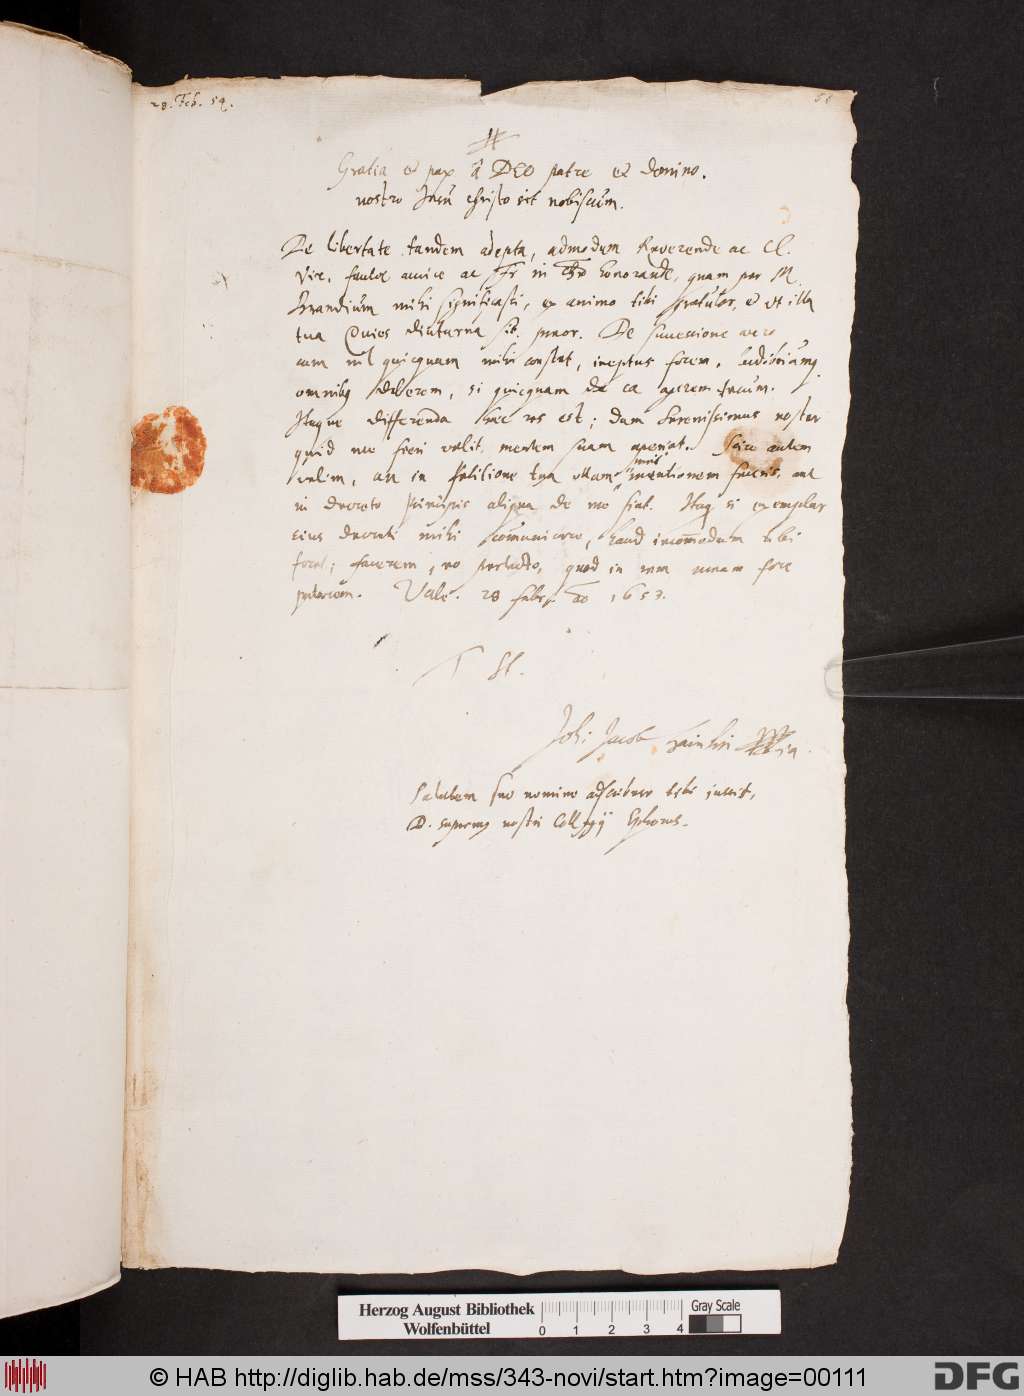 28. Feb. 54.
Gratia et pax à DEO patre et domino.
nostro Jesu Christo sit nobiscum.
De libertate tandem adepta, admodum Reverende ac Cl.
Vir, fautor amice ac Fr in Chr honorande, quam per M.
Brandium mihi significasti, ex animo tibi gratulor, et ut illa
tua Quies diuturna sit. precor. De successione vero
cum nil quicquam mihi constet, ineptus forem, ludibriumq
omnibq deberem, si quicquam de ea
Itaque differenda haec res est; dum Serenissimus noster
quid fieri velit, mentem suam aperiat. Scire autem
velim, an in Petitione tua ullam mei mentionem feceris, aut
in decreto Principis aliqua de me fiat. Itaq si exemplar
eius decreti mihi communicare, haud incommodum tibi
foret; facerem, eo perlecto, quod in rem meam fore
putarem. Vale. 28 febr. ao 165
T St.
Joh: Jacob
Salutem suo nomine adscribere tibi jussit,
D. supremq nostri Collegij Ephorus.
Herzog August Bibliothek
Wolfenbüttel
0 1 2 3 4
Gray Scale
© HAB http://diglib.hab.de/mss/343-novi/start.htm?image=00111
DFG